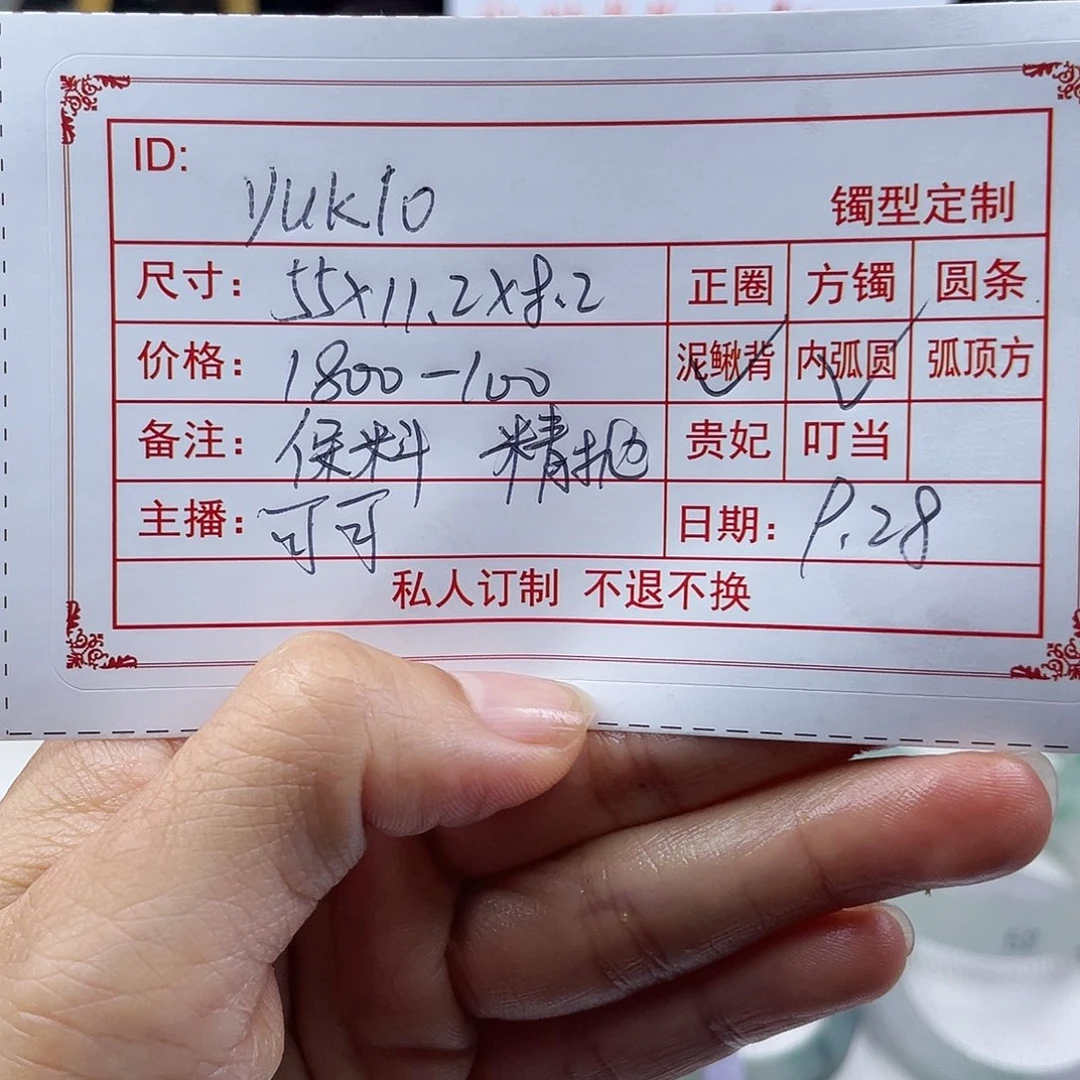 ID: yukio
镯型定制
尺寸: 55×11.2×8.2 正圈 方镯 圆条
价格: 1800-100 泥鳅背 内弧圆 弧顶方
备注: 保料 精抛 贵妃 叮当
主播: 可可 日期: 9.28
私人订制 不退不换